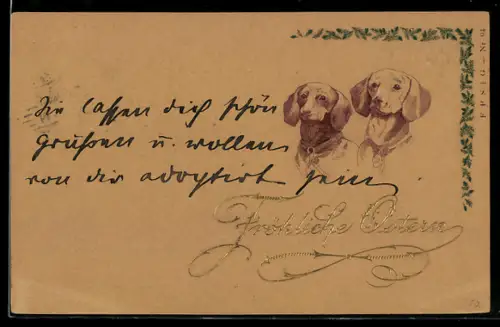 Sie lassen dich schön
grüßen u. wollen
von dir adoptirt sein
Fröhliche Ostern
E.P.S.i.G. — Nr. 64